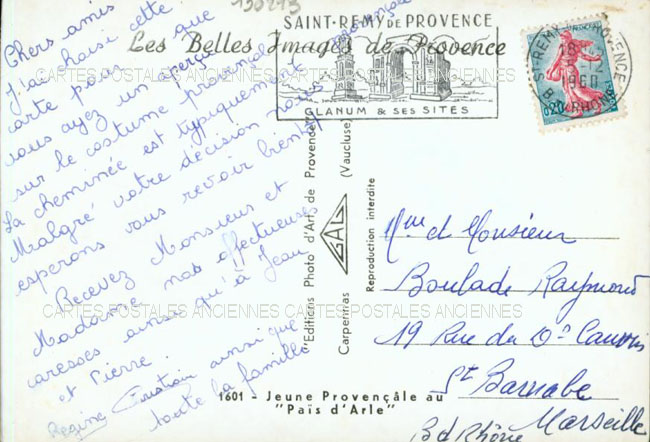 130213
Chers amis
J'ai choisi cette
carte pour que
vous ayez un aperçu
sur le costume provençal
La cheminée est typiquement provençale
Malgré votre décision nous
esperons vous revoir bientôt
Recevez Monsieur et
Madame nos affectueuses
caresses ainsi qu'à Jean
et Pierre.
Regine Christian ainsi que
toute la famille
Les Belles Images de Provence
SAINT-REMY DE PROVENCE
GLANUM & SES SITES
ST REMY DE PROVENCE
18 H
1960
B. DU RHONE
0,20
CARTES POSTALES ANCIENNES CARTES POSTALES ANCIENNES
CARTES POSTALES ANCIENNES CARTES POSTALES ANCIENNES
"Editions Photo d'Art de Provence"
Carpentras (Vaucluse)
GAL
Reproduction interdite
Mme et Monsieur
Boulade Raymond
19 Rue du Dr
St Barnabe
Marseille
Bd Rhône
1601 - Jeune Provençale au
"Païs d'Arle"